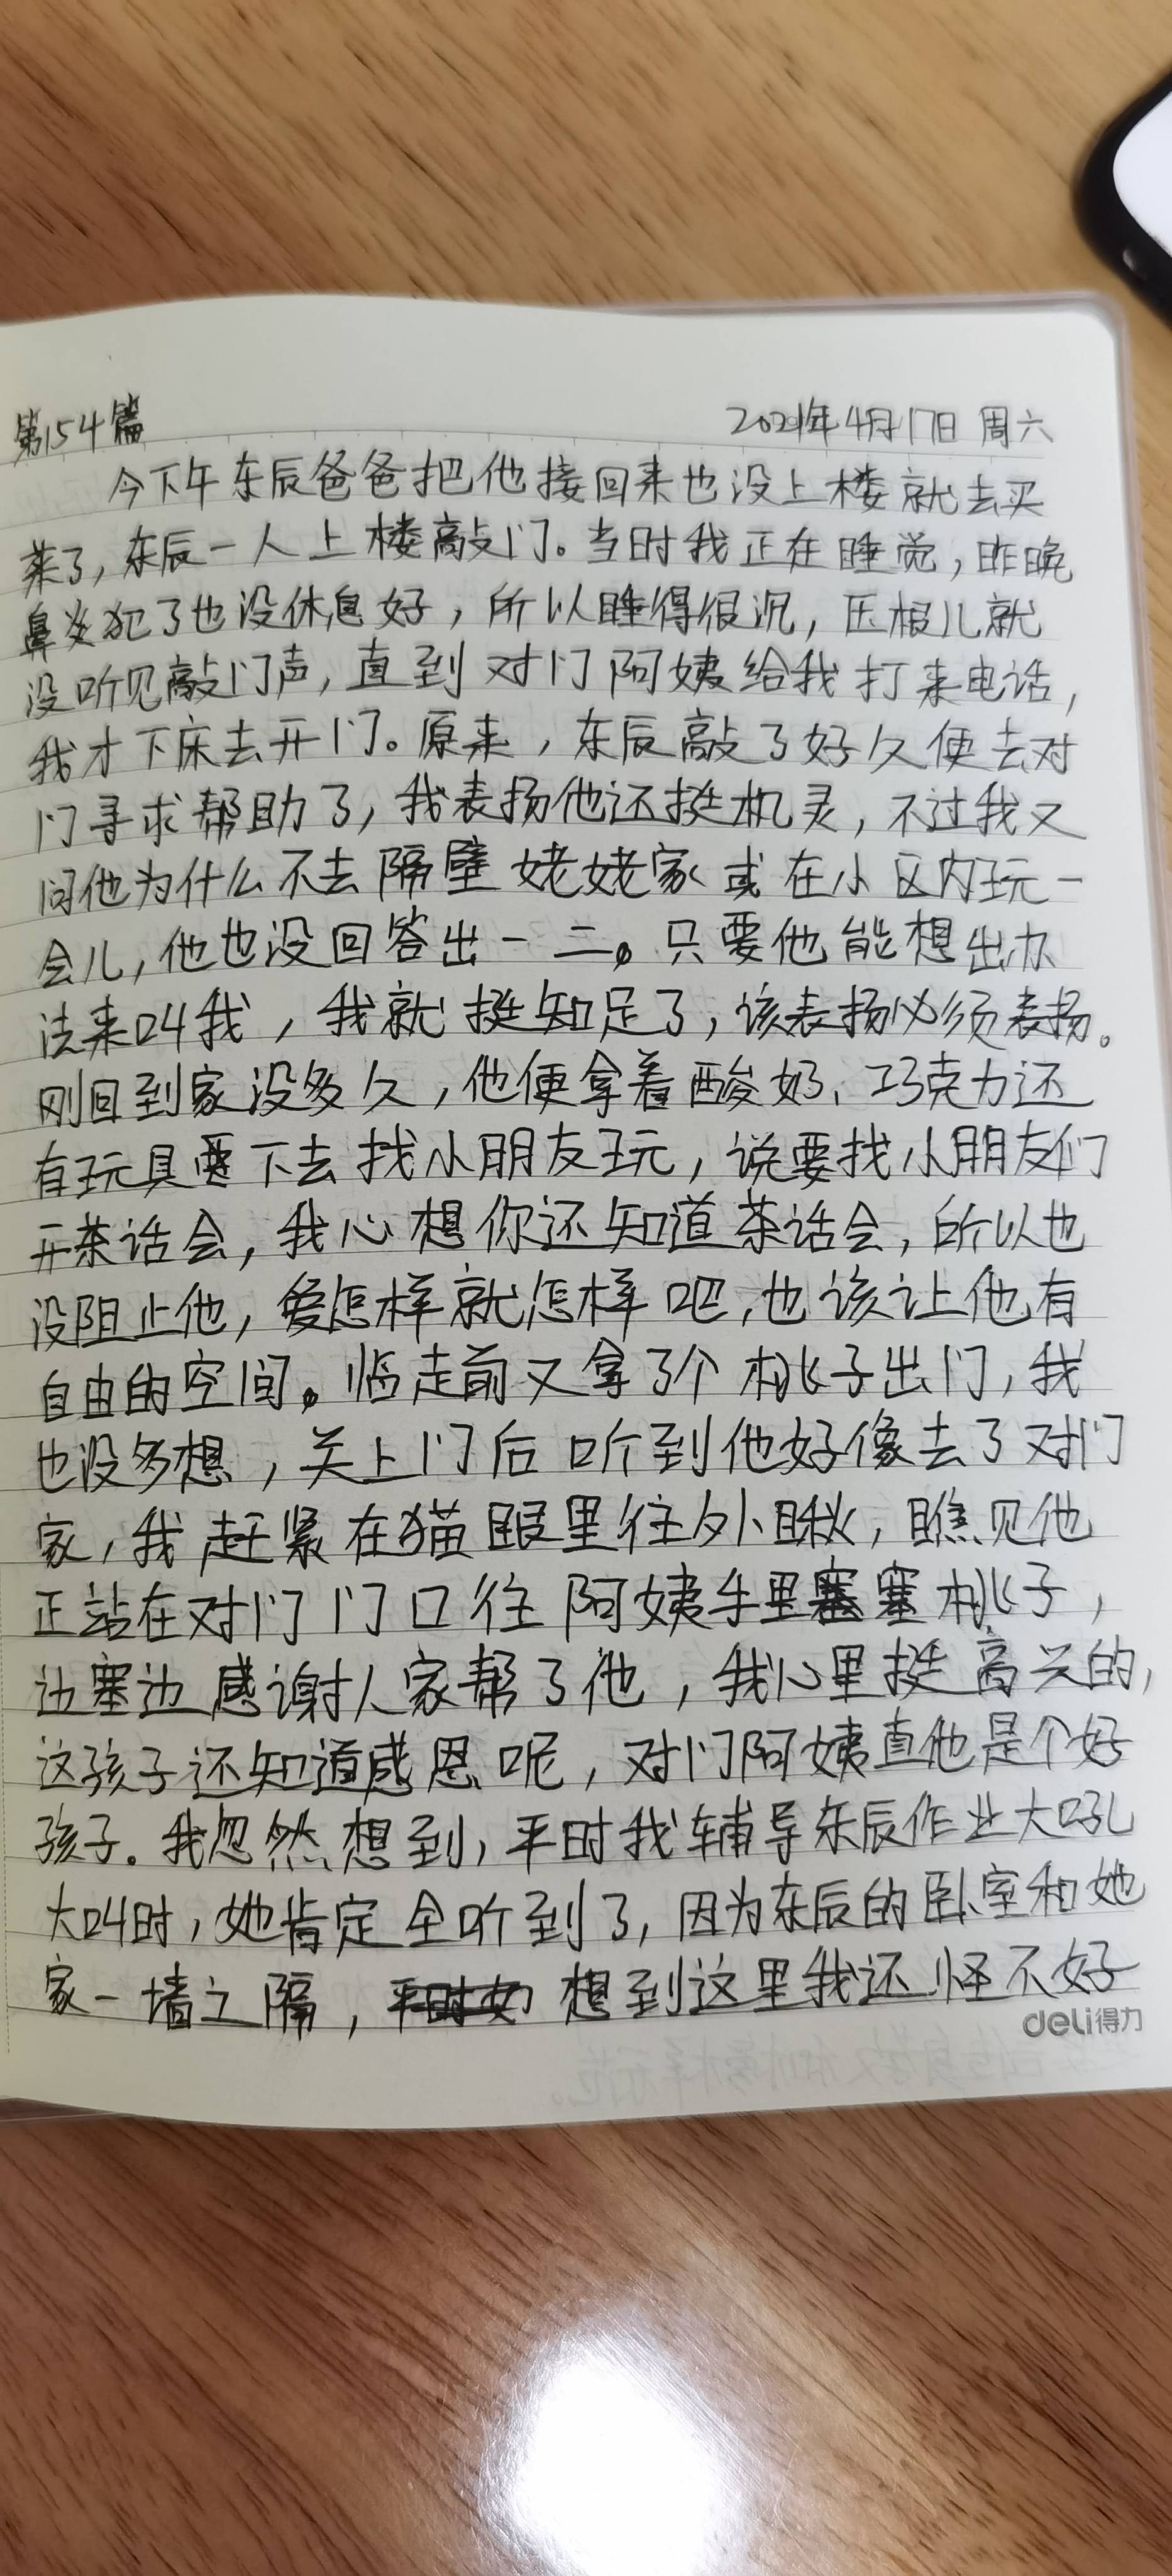 第154篇 2021年4月17日 周六
今下午东辰爸爸把他接回来也没上楼就去买
菜了,东辰一人上楼敲门。当时我正在睡觉,昨晚
鼻炎犯了也没休息好,所以睡得很沉,压根儿就
没听见敲门声,直到对门阿姨给我打来电话,
我才下床去开门。原来,东辰敲了好久便去对
门寻求帮助了,我表扬他还挺机灵,不过我又
问他为什么不去隔壁姥姥家或在小区内玩一
会儿,他也没回答出一二。只要他能想出办
法来叫我,我就挺知足了,该表扬必须表扬。
刚回到家没多久,他便拿着酸奶、巧克力还
有玩具要下去找小朋友玩,说要找小朋友们
开茶话会,我心想你还知道茶话会,所以也
没阻止他,爱怎样就怎样吧,也该让他有
自由的空间。临走前又拿了个桃子出门,我
也没多想,关上门后听到他好像去了对门
家,我赶紧在猫眼里往外瞅,瞧见他
正站在对门门口往阿姨手里塞桃子,
边塞边感谢人家帮了他,我心里挺高兴的,
这孩子还知道感恩呢,对门阿姨直他是个好
孩子.我忽然想到,平时我辅导东辰作业大吼
大叫时,她肯定全听到了,因为东后的卧室和她
家一墙之隔,想到这里我还怪不好
deli得力